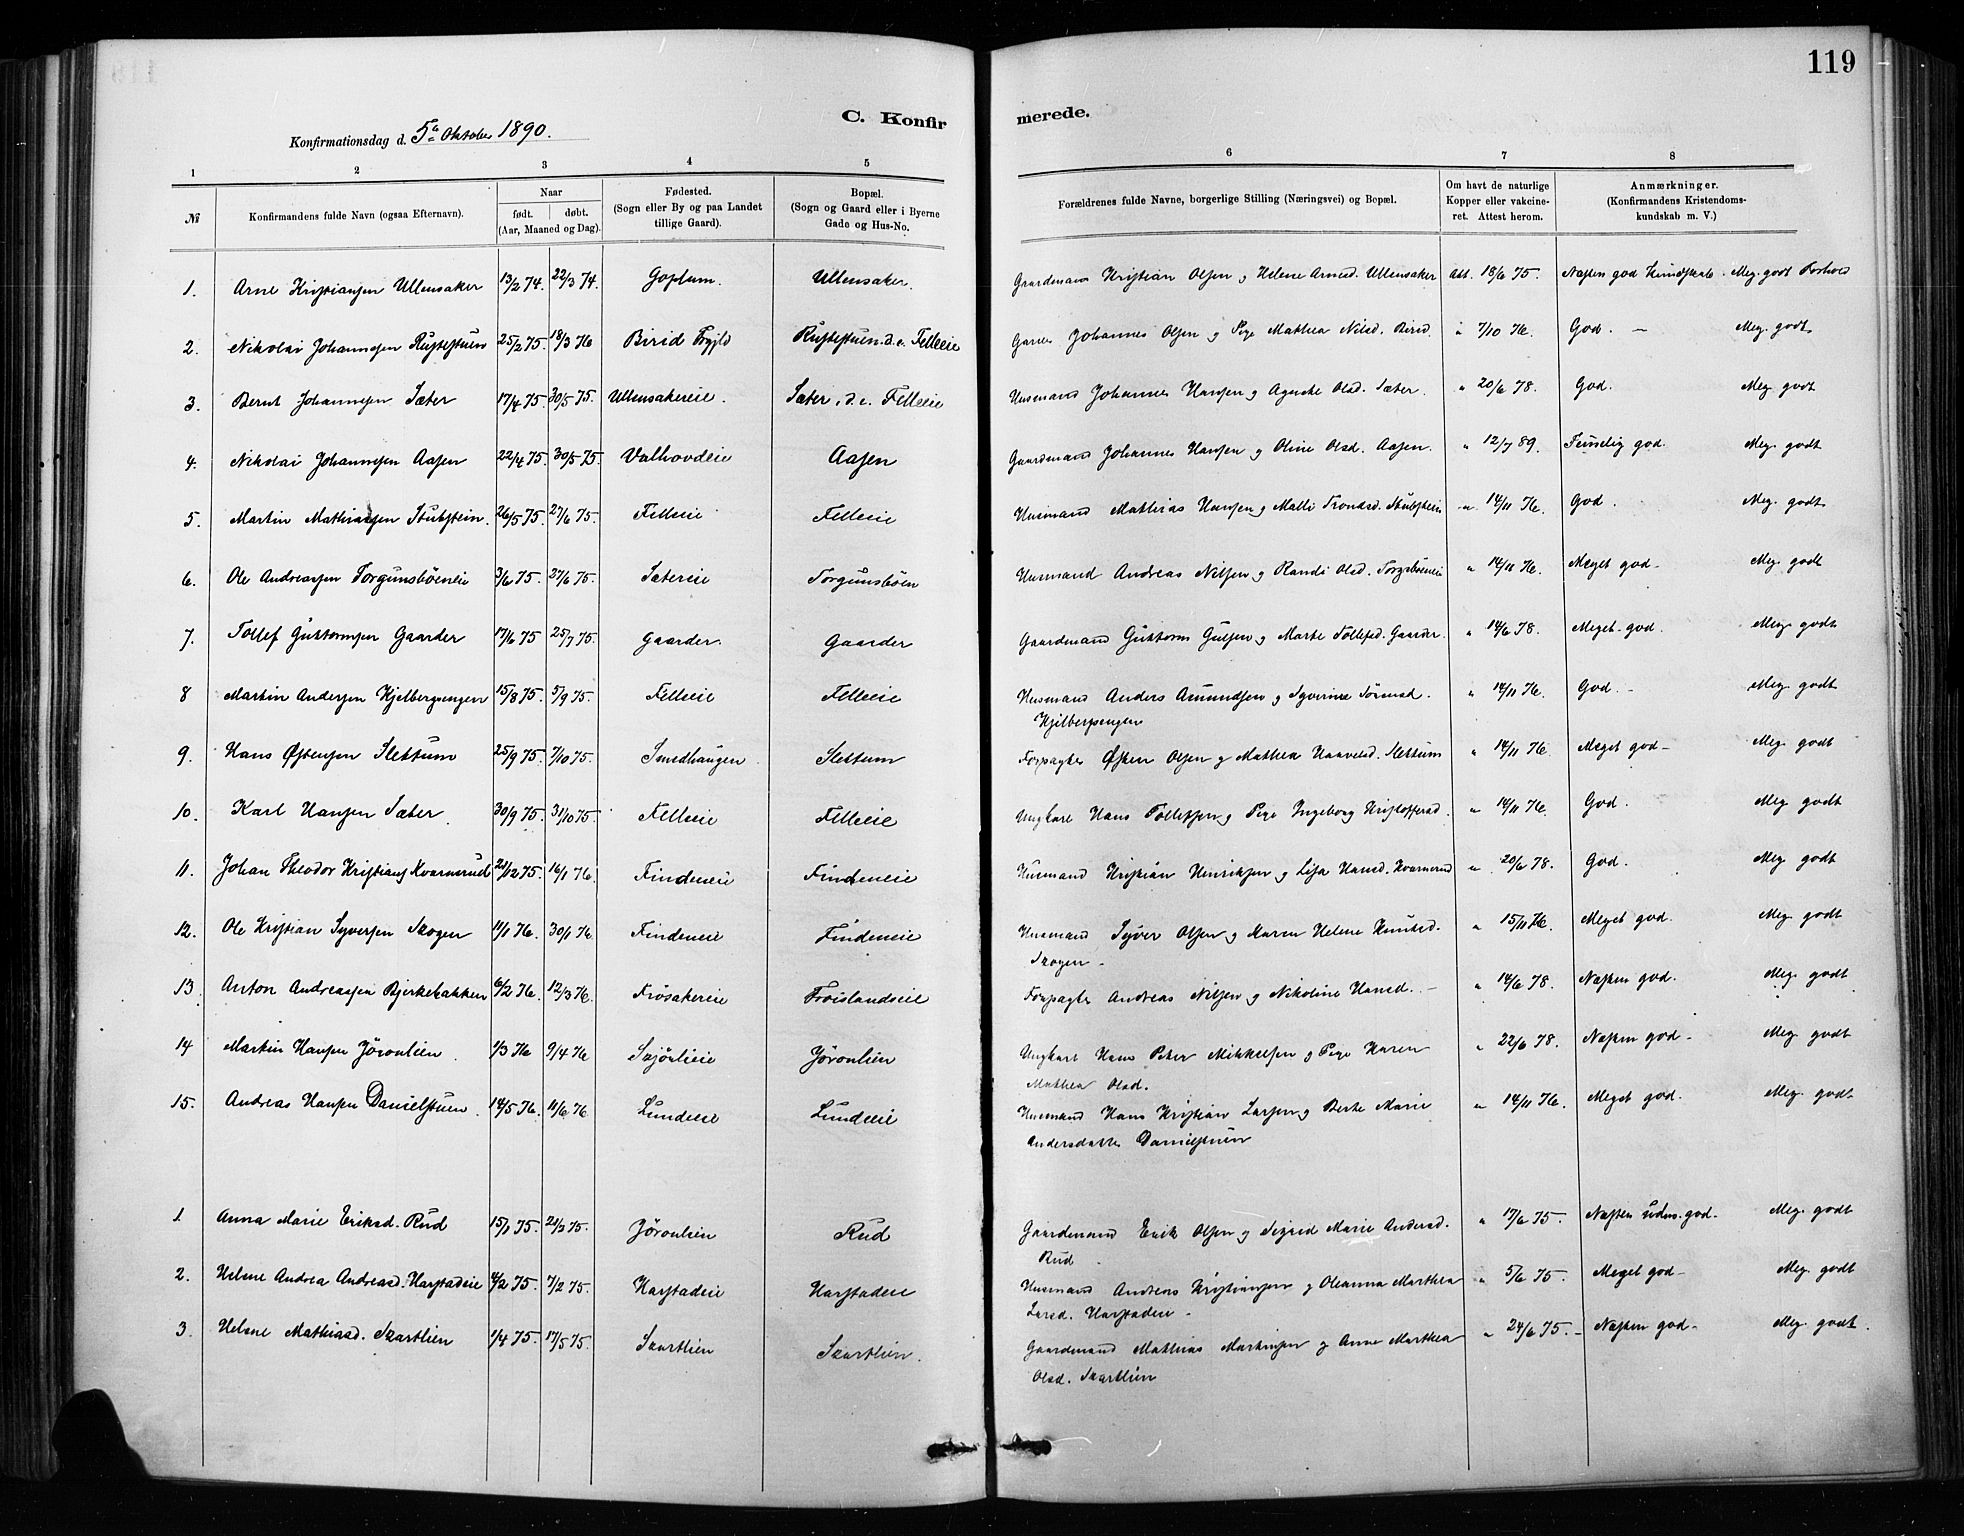 119
C. Konfirmerede.
Konfirmationsdag d. 5te Oktober 1890.
1 2 3 4 5 6 7 8
№ Konfirmandens fulde Navn (ogsaa Efternavn). Naar født. døbt. (Aar, Maaned og Dag). Fødested. (Sogn eller By og paa Landet tillige Gaard). Bopæl. (Sogn og Gaard eller i Byerne Gade og Hus-No. Forældrenes fulde Navne, borgerlige Stilling (Næringsvei) og Bopæl. Om havt de naturlige Kopper eller vakcineret. Attest herom. Anmærkninger. (Konfirmandens Kristendomskundskab m. V.)
1. Arne Kristiansen Ullensaker 13/2 74. 22/3 74. Goplum. Ullensaker. Gaardmand Kristian Olsen og Helene Arnesd. Ullensaker Att. 18/6 75. Næsten god Kundskab. Meg. godt Forhold
2. Nikolai Johannesen Rustestuen 25/2 75. 18/3 76 Birid Rustestuen. d. e. Felleeie Johannes Olsen og Pige Mathea Nilsd. Birid. " 7/10 76. God. — Meg. godt
3. Bernt Johannesen Sæter 17/4 75. 30/5 75. Ullensakereie. Sæter. d. e. Felleeie Husmand Johannes Hansen og Agnethe Olsd. Sæter. " 20/6 78. God. Meg. godt
4. Nikolai Johannesen Aasen 22/4 75. 30/5 75. Valhovdeie Aasen Gaardmand Johannes Hansen og Oline Olsd. Aasen. " 12/7 89. Temmelig god. Meg. godt
5. Martin Mathiassen Stubstein. 26/5 75. 27/6 75. Felleeie Felleeie Husmand Mathias Hansen og Malli Trondsd. Stubstein " 14/11 76. God. Meg. godt
6. Ole Andreassen Torgunsbøeneie 3/6 75. 27/6 75. Sætereie Torgunsbøen Husmand Andreas Nilsen og Randi Olsd. " 14/11 76. Meget god — Meg. godt
7. Tollef Guttormsen Gaarder 17/6 75 25/7 75. Gaarder. Gaarder Gaardmand Guttorm Gulsen og Marte Tollefsd. Gaarder. " 14/6 78. Meget god. Meg. godt
8 Martin Andersen Kjelbergengen 15/8 75. 5/9 75. Felleeie Felleeie Husmand Anders Amundsen og Syverine " 14/11 76. God. — Meg. godt
Kjelbergengen
9. Hans Østensen Slettum 25/9 75. 7/10 75. Smedhaugen Slettum Forpagter Østen Olsen og Mathea Haavelsd. Slettum " 14/11 76. Meget god — Meg. godt
10. Karl Hansen Sæter. 30/9 75. 31/10 75. Felleeie Felleeie Ungkarl Hans Tollefsen og Pige Ingeborg Kristoffersd. " 14/11 76. God. Meg. godt
11. Johan Theodor Kristians. Kvarnerud 21/12 75. 16/1 76. Findeneie Findeneie Husmand Kristian Henriksen og Lisa Hansd. Kvarnerud " 20/6 78. God. Meg. godt
12. Ole Kristian Syversen Skogen 11/1 76. 30/1 76 Findeneie Findeneie Husmand Syver Olsen og Maren Helene Knutsd. " 15/11 76. Meget god. Meg. godt
Skogen —
13. Anton Andreassen Bjerkebakken 6/2 76. 12/3 76. Frøsakereie Frøislandseie Forpagter Andreas Nilsen og Nikoline Hansd. — " 14/6 78. Næsten god. Meg. godt
14 Martin Hansen Jøronlien. 1/3 76 9/4 76 Skjørlieie Jøronlien Ungkarl Hans Peter Mikkelsen og Pige Karen " 22/6 78. Næsten god — Meg. godt
Mathea Olsd.
15. Andreas Hansen Danielstuen. 14/5 76. 11/6 76 Lundeeie Lundeeie Husmand Hans Kristian Larsen og Berte Marie " 14/11 76. Meget god. Meg. godt
Andersdatter Danielstuen
1. Anna Marie Eriksd. Rud 15/1 75. 21/3 75. Jøronlien Rud Gaardmand Erik Olsen og Sigrid Marie Andersd. " 17/6 75. Næsten udm. god. Meg. godt
Rud
2. Helene Andrea Andreasd. Harstadeie 4/2 75. 7/2 75. Harstadeie Harstadeie Husmand Andreas Kristiansen og Oleanna Marthea " 5/6 75. Meget god — Meg. godt
Larsd. Harstadeie —
3. Helene Mathiasd. Skartlien 1/4 75. 17/5 75. Skartlien Skartlien. Gaardmand Mathias Martinsen og Anne Marthea " 24/6 75. — Næsten god — Meg. godt.
Olsd. Skartlien